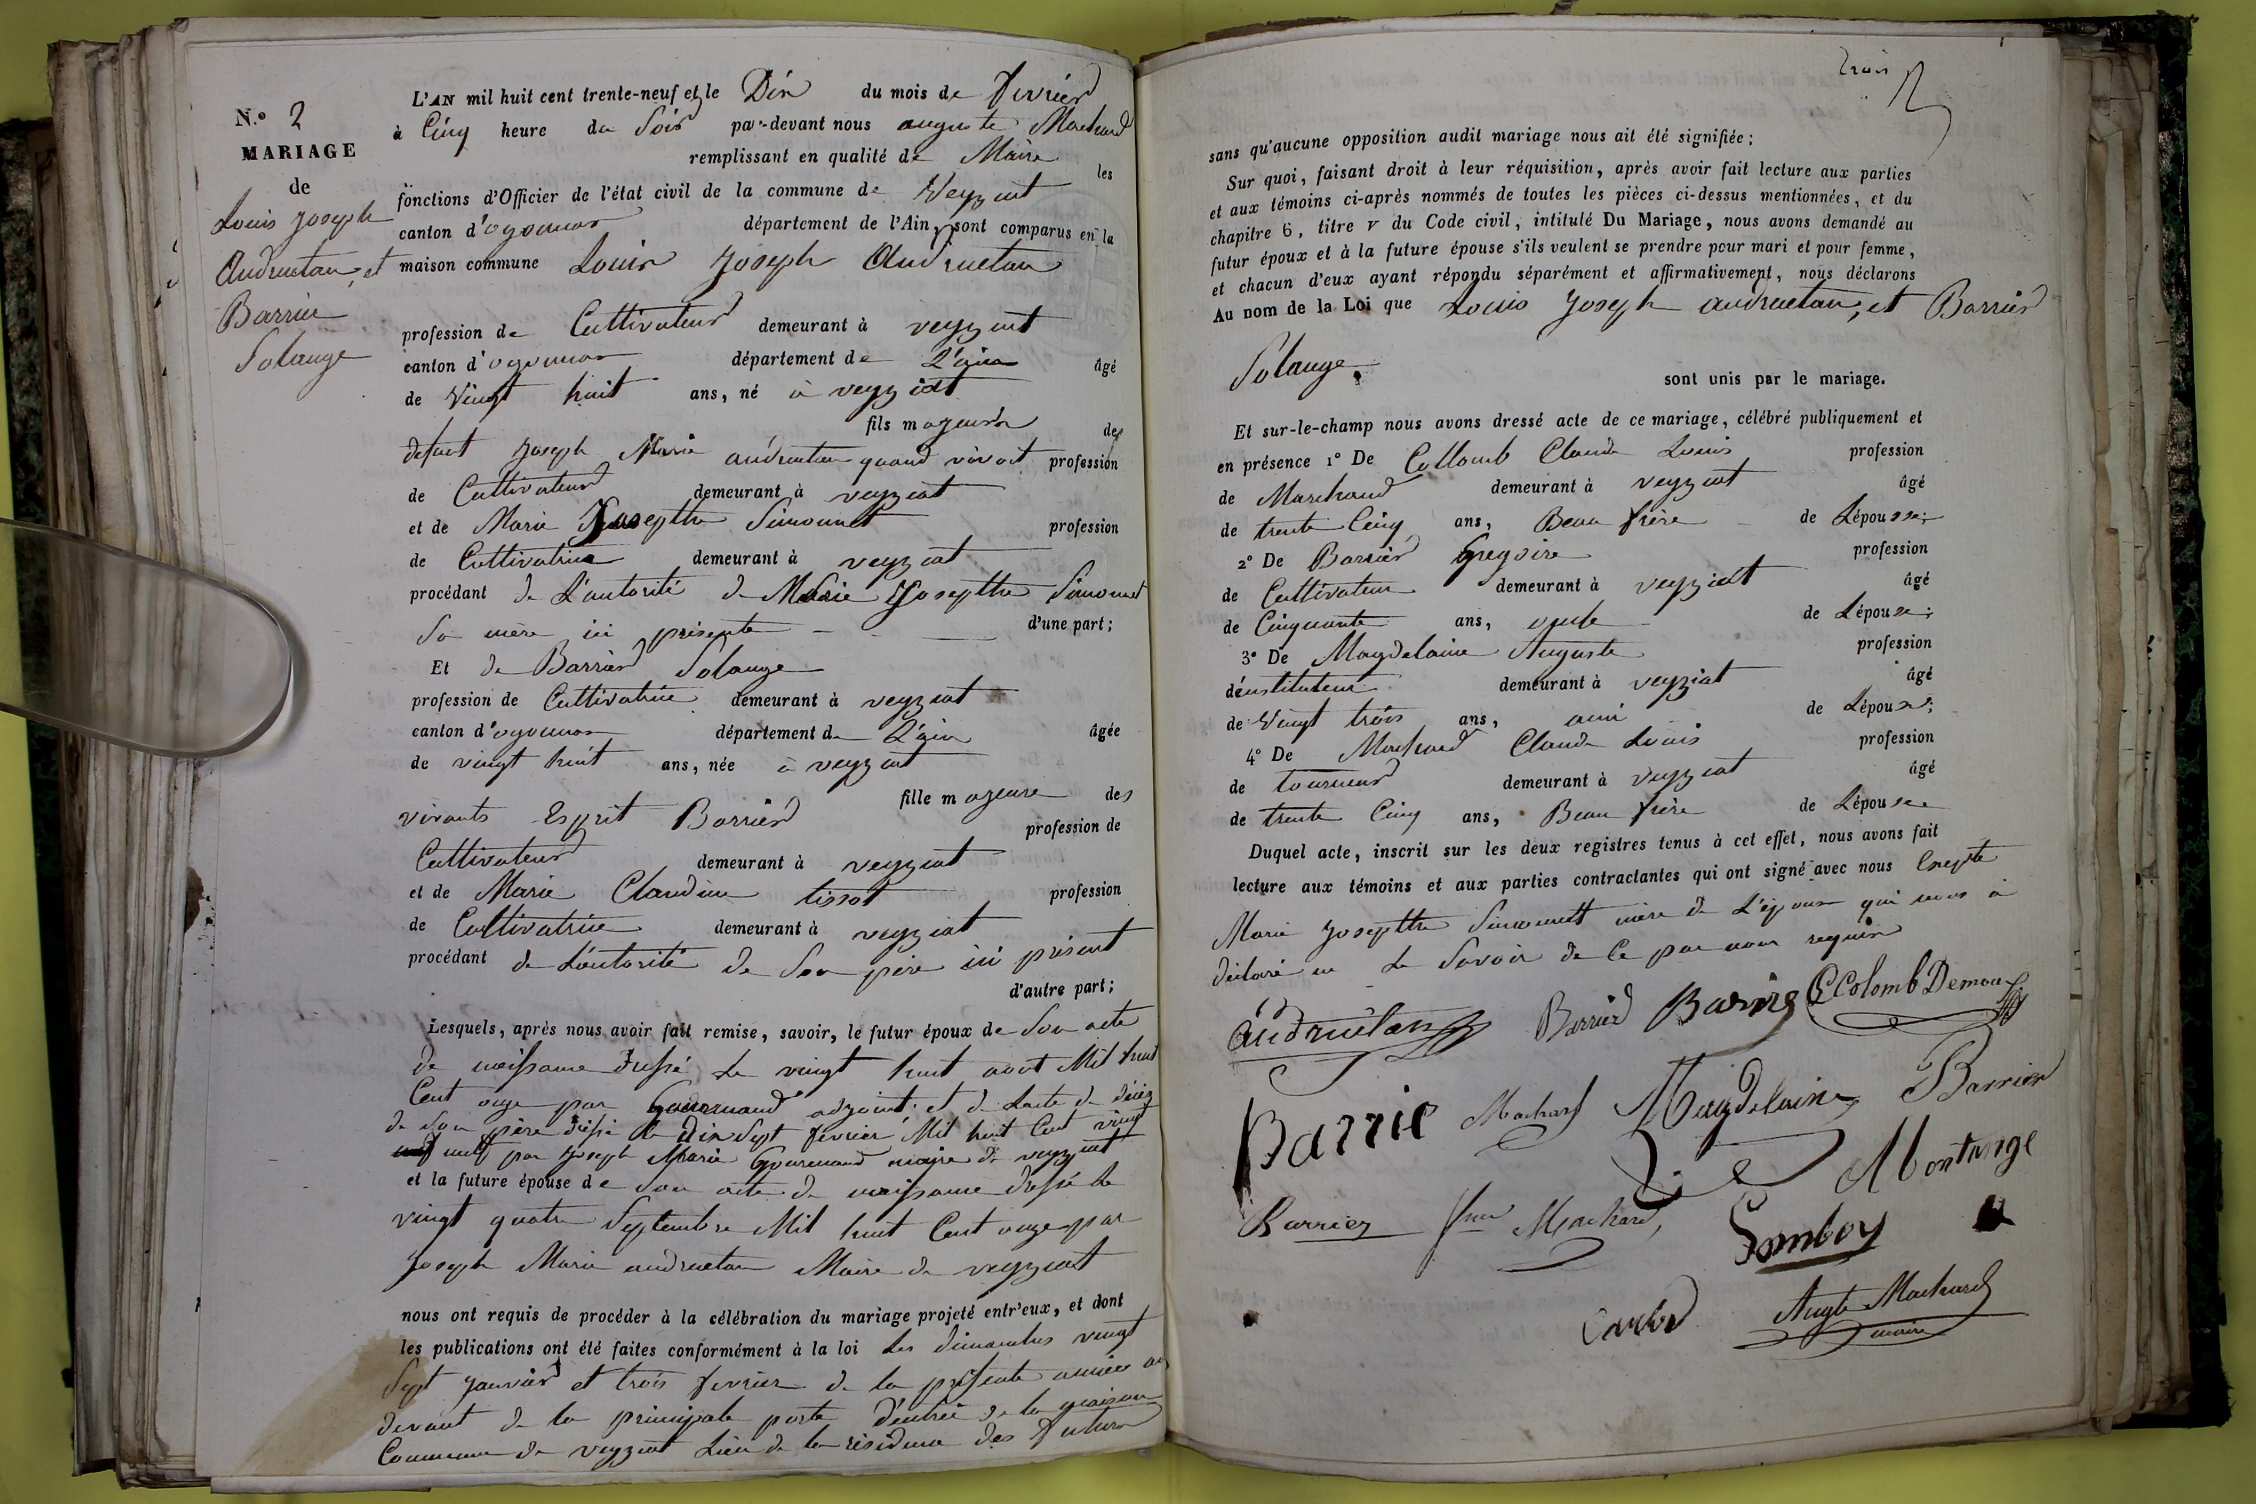 N.º 2
MARIAGE
de
Louis Joseph
Andruetan, et
Barrier
Solange
L'AN mil huit cent trente-neuf et le Dix du mois de fevrier
à Cinq heure du Soir par-devant nous auguste Machard
remplissant en qualité de Maire les
fonctions d'Officier de l'état civil de la commune de Veyziat
canton d'oyonnax département de l'Ain, sont comparus en la
maison commune Louis Joseph Andruetan
profession de Cultivateur demeurant à veyziat
canton d'oyonnax département de L'ain âgé
de Vingt huit ans, né à veyziat
fils majeur de
defunt Joseph Marie andruetan quand vivoit profession
de Cultivateur demeurant à veyziat
et de Marie Josepthe Simonnet profession
de Cultivatrice demeurant à veyziat
procédant de L'autorité de Marie Josepthe Simonnet
Sa mère ici présente d'une part;
Et de Barrier Solange
profession de Cultivatrice demeurant à veyziat
canton d'oyonnax département de L'ain âgée
de vingt huit ans, née à veyziat
fille majeure des
vivants Esprit Barrier profession de
Cultivateur demeurant à veyziat
et de Marie Claudine tissot profession
de Cultivatrice demeurant à veyziat
procédant de L'autorité de Son père ici présent
d'autre part;
Lesquels, après nous avoir fait remise, savoir, le futur époux de Son acte
de naissance dressé Le vingt huit aout Mil huit
Cent onze par Gourmand adjoint; et de L'acte de décez
de Son père dressé le dix Sept fevrier Mil huit Cent vingt
neuf par Joseph Marie Gourmand maire de veyziat
et la future épouse de Son acte de naissance dressé le
vingt quatre Septembre Mil huit Cent onze par
Joseph Marie andruetan Maire de veyziat
nous ont requis de procéder à la célébration du mariage projeté entr'eux, et dont
les publications ont été faites conformément à la loi Les dimanches vingt
Sept janvier et trois fevrier de la présente année au
devant de la principale porte d'entrée de la maison
Commune de veyziat Lieu de la résidence des futurs
trois
sans qu'aucune opposition audit mariage nous ait été signifiée;
Sur quoi, faisant droit à leur réquisition, après avoir fait lecture aux parties
et aux témoins ci-après nommés de toutes les pièces ci-dessus mentionnées, et du
chapitre 6, titre V du Code civil, intitulé Du Mariage, nous avons demandé au
futur époux et à la future épouse s'ils veulent se prendre pour mari et pour femme,
et chacun d'eux ayant répondu séparément et affirmativement, nous déclarons
Au nom de la Loi que Louis Joseph andruetan, et Barrier
Solange
sont unis par le mariage.
Et sur-le-champ nous avons dressé acte de ce mariage, célébré publiquement et
en présence 1º De Collomb Claude Louis profession
de Marchand demeurant à veyziat âgé
de trente Cinq ans, Beau frère de Lépouse;
2º De Barrier Gregoire profession
de Cultivateur demeurant à veyziat âgé
de Cinquante ans, oncle de Lépouse;
3º De Magdelaine Auguste profession
d'instituteur demeurant à veyziat âgé
de Vingt trois ans, ami de Lépouse;
4º De Machard Claude Louis profession
de tourneur demeurant à veyziat âgé
de trente Cinq ans, Beau frère de Lépouse
Duquel acte, inscrit sur les deux registres tenus à cet effet, nous avons fait
lecture aux témoins et aux parties contractantes qui ont signé avec nous Excepté
Marie Josepthe Simonnett mère de L'époux qui nous à
déclaré ne Le Savoir de Ce par nous requis
andruetan Barrier Barrier C Colomb Demoux
Barrie Machard Magdelaine Barrier
Montange
Barrier Machard Gamboy
Augte Machard
maire